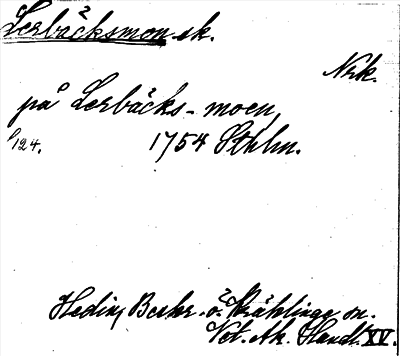 Lerbäcksmon sk.
Nrk.
på Lerbäcks-moen,
s 124. 1754 Sthlm.
Hedin, Beskr. ö. Kräklinge sn.
Vet. Ak. Handl. XV.